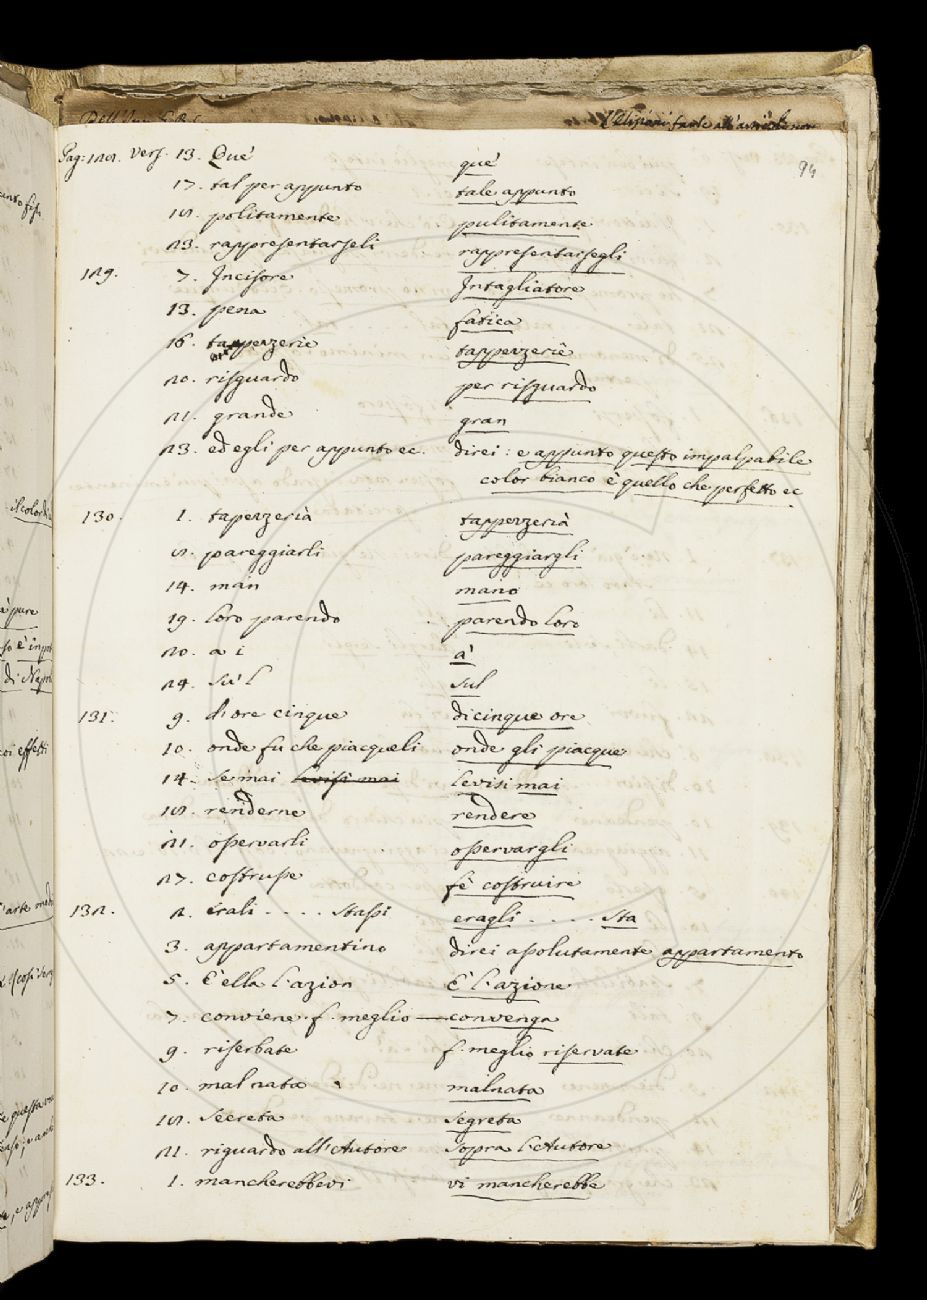 Pag: 128. vers. 13. Què què 94
17. tal per appunto tale appunto
18. politamente pulitamente
23. rappresentarseli rappresentarsegli
129. 7. Incisore Intagliatore
13. pena fatica
16. tappezzerie tappezzerie
20. risguardo per risguardo
21. grande gran
23. ed egli per appunto ec. direi: e appunto questo impalpabile
color bianco è quello che perfetto ec
130. 1. tapezzeria tappezzeria
8. pareggiarli pareggiargli
14. man mano
19. loro parendo parendo loro
20. a i a'
24. sù'l sul
131. 9. d'ore cinque di cinque ore
10. onde fu che piacqueli onde gli piacque
14. se mai levisi mai levisi mai
18. renderne rendere
21. osservarli osservargli
27. costrusse fè costruire
132. 2. Erali . . . . stassi eragli . . . . sta
3. appartamentino direi assolutamente appartamento
5. È ella l'azion È l'azione
7. conviene. f. meglio — convenga
9. riserbate f. meglio riservate
10. mal nata malnata
18. secreta segreta
21. riguardo all'Autore sopra l'Autore
133. 1. mancherebbevi vi mancherebbe